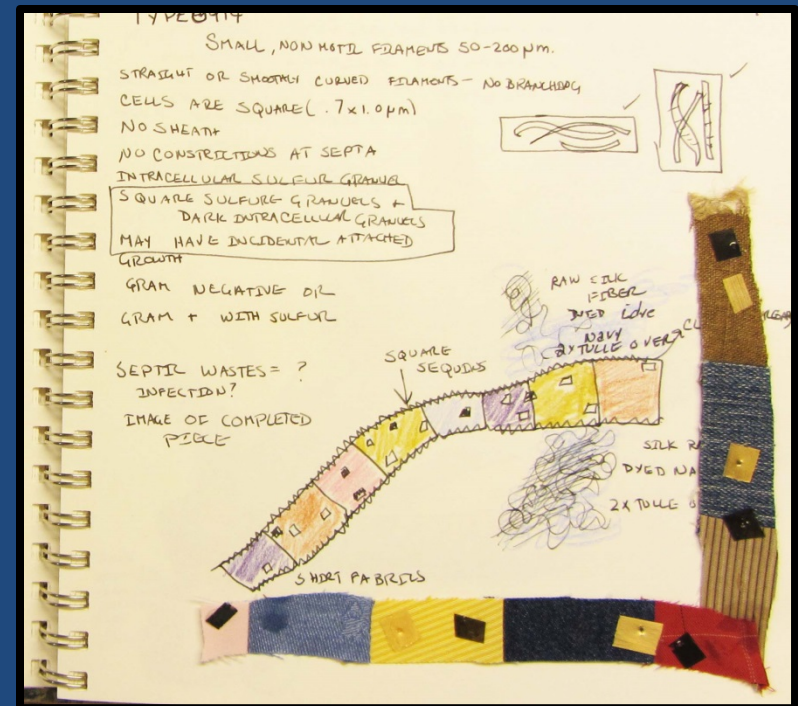 TYPE 0914
SMALL, NON MOTIL FILAMENTS 50-200 µm.
STRAIGHT OR SMOOTHLY CURVED FILAMENTS - NO BRANCHING
CELLS ARE SQUARE (.7x1.0 µm)
NO SHEATH
NO CONSTRICTIONS AT SEPTA
INTRACELLULAR SULFUR GRANUEL
SQUARE SULFURE GRANUELS +
DARK INTRACELLULAR GRANUELS
MAY HAVE INCIDENTAL ATTACHED
GROWTH
GRAM NEGATIVE OR
GRAM + WITH SULFUR
RAW SILK
FIBER
DYED
NAVY
2X TULLE OVER
SQUARE
SEQUINS
SEPTIC WASTES = ?
INFECTION?
IMAGE OF COMPLETED
PIECE
SILK
DYED NA
2X TULLE O
SHORT FABRICS